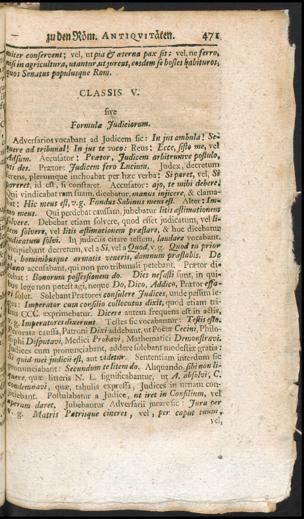 zu den Röm. ANTIQVITäten. 471
miter conservent; vel, ut pia & æterna pax sit: vel, ne ferro,
nisi in agricultura, utantur, ut jurent, eosdem se hostes habituros,
quos Senatus populusque Rom.
CLASSIS V.
sive
Formulæ Judiciorum.
Adversarios vocabant ad Judicem sic: In jus ambula! Se-
quere ad tribunal! In jus te voco: Reus: Ecce, sisto me, vel
Adsum. Accusator: Prætor, Judicem arbitrumve postulo,
uti des. Prætor: Judicem fero Lucium. Judex, decretum
ferens, plerumque inchoabat per hæc verba: Si paret, vel, Si
pareret, id est, si constaret. Accusator: ajo, te mihi debere.
Qui vindicabat rem suam, dicebatur, manus injicere, & clama-
bat: Hic meus est, v.g. Fundus Sabinus meus est. Alter: Im-
mo meus. Qui perdebat caussam, jubebatur litis æstimationem
solvere. Debebat etiam solvere, quod esset judicatum, vel
solvere, vel litis æstimationem præstare, & hoc dicebatur
judicatum solvi. In judiciis citare testem, laudare vocabant.
Incipiebant decretum, vel a Si, vel a Quod, v. g. Quod tu prior
hominibusque armatis veneris, damnum præstabis. De
accusabant, qui non pro tribunali petebant. Prætor di-
cebat: Bonorum possessionem do. Dies nefasti sunt, in qui-
bus lege non potest agi, neque Do, Dico, Addico, Prætor effa-
ri solet. Solebant Prætores consulere Judices, unde passim le-
Imperator cum consilio collocutus dixit, quod etiam tri-
CCC. exprimebatur. Dicere autem frequens est in actis,
Imperatores dixerunt. Testes sic vocabantur: Testis esto.
caussa, Patroni Dixi addebant, ut Poëtæ Cecini, Philo-
sophi Disputavi, Medici Probavi, Mathematici Demonstravi.
Judices cum pronunciabant, addere solebant modestiæ gratia:
Si quid mei judicii est, aut videtur. Sententiam interdum sic
pronunciabant: Secundum te litem do. Aliquando sibi non li-
quere, quæ literis N. L. significabantur, ut A. absolvi, C.
condemnavi, quæ, tabulis expressa, Judices in urnam con-
Postulabatur a Judice, ut iret in Consilium, vel
operam daret. Jubebantur Adversarii jurare sic: Jura per
v. g. Matris Patrisque cineres, vel, per caput tuum,
vel,